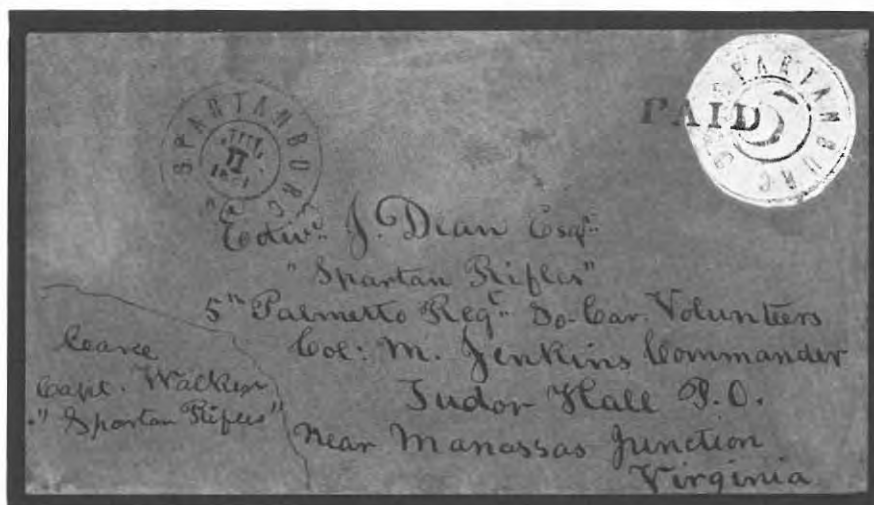 SPARTANBURG
S.C.
JUL
11
1861
PAID
5
SPARTANBURG
Edwd. J. Dean Esqr.
"Spartan Rifles"
5th Palmetto Regt. So. Car. Volunteers
Col: M. Jenkins Commander
Tudor Hall P.O.
Near Manassas Junction
Virginia
Care
Capt. Walker
"Spartan Rifles"